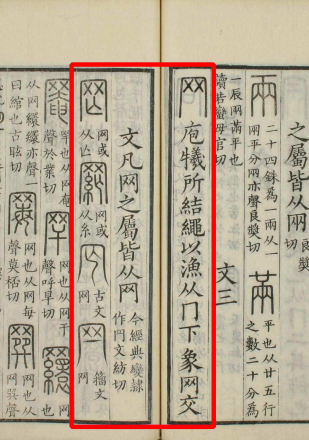 之屬皆从㒳 良獎切
兩 二十四銖為一兩从一㒳平分㒳亦聲良獎切 㒼 平也从廿五行之數二十分為
一辰㒳滿平也讀若蠻母官切 文三
网 庖犧所結繩以漁从冂下象网交
文凡网之屬皆从网 今經典變隸作罓文紡切
罔 网或从亡 網 网或从糸 古文网 籒文网
罨 罕也从网奄聲於業切 罕 网也从网干聲呼旱切 网也
从网繯繯亦聲一曰綰也古眩切 网也从网每聲莫桮切 网也从网巽聲